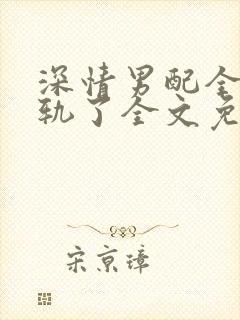 深情男配全
轨了全文免
宋京璋